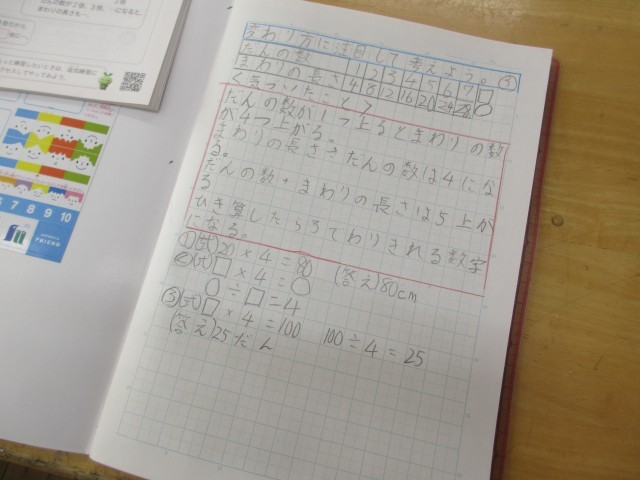 だんの数が2倍、3倍、
まわりの長さも…
変わり方に注目して考えよう。③
だんの数 1 2 3 4 5 6 7 □
まわりの長さ 4 8 12 16 20 24 28 ○
<気づいたこと>
だんの数が1つ上るとまわりの数
が4つ上がる。
まわりの長さ÷だんの数は4にな
る。
だんの数+まわりの長さは5上が
る
ひき算したら3でわりきれる数字
になる。
①(式)20×4=80 (答え)80cm
②(式)□×4=○
○÷□=4
③(式)□×4=100 100÷4=25
(答え)25だん
7 8 9 10